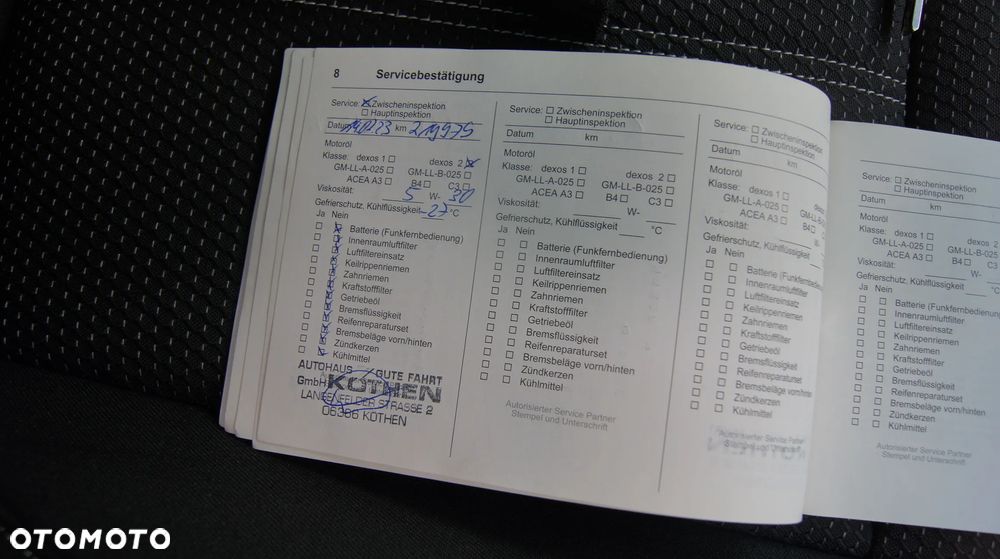 8 Servicebestätigung
Service: ☒ Zwischeninspektion
☐ Hauptinspektion
Datum km 219975
Motoröl
Klasse: dexos 1 ☐ dexos 2 ☒
GM-LL-A-025 ☐ GM-LL-B-025 ☐
ACEA A3 ☐ B4 ☐ C3 ☐
Viskosität: 5 W- 30
Gefrierschutz, Kühlflüssigkeit -27 °C
Ja Nein
☐ ☒ Batterie (Funkfernbedienung)
☐ ☒ Innenraumluftfilter
☐ ☒ Luftfiltereinsatz
☐ ☒ Keilrippenriemen
☐ ☒ Zahnriemen
☐ ☒ Kraftstofffilter
☐ ☒ Getriebeöl
☐ ☒ Bremsflüssigkeit
☐ ☒ Reifenreparaturset
☐ ☒ Bremsbeläge vorn/hinten
☐ ☒ Zündkerzen
☐ ☒ Kühlmittel
AUTOHAUS GUTE FAHRT
GmbH KÖTHEN
LANGENFELDER STRASSE 2
06366 KÖTHEN
Service: ☐ Zwischeninspektion
☐ Hauptinspektion
Datum km
Motoröl
Klasse: dexos 1 ☐ dexos 2 ☐
GM-LL-A-025 ☐ GM-LL-B-025 ☐
ACEA A3 ☐ B4 ☐ C3 ☐
Viskosität: W-
Gefrierschutz, Kühlflüssigkeit °C
Ja Nein
☐ ☐ Batterie (Funkfernbedienung)
☐ ☐ Innenraumluftfilter
☐ ☐ Luftfiltereinsatz
☐ ☐ Keilrippenriemen
☐ ☐ Zahnriemen
☐ ☐ Kraftstofffilter
☐ ☐ Getriebeöl
☐ ☐ Bremsflüssigkeit
☐ ☐ Reifenreparaturset
☐ ☐ Bremsbeläge vorn/hinten
☐ ☐ Zündkerzen
☐ ☐ Kühlmittel
Autorisierter Service Partner
Stempel und Unterschrift
Service: ☐ Zwischeninspektion
☐ Hauptinspektion
Datum km
Motoröl
Klasse: dexos 1 ☐
GM-LL-A-025 ☐
ACEA A3 ☐ B4 ☐
Viskosität: W-
Gefrierschutz, Kühlflüssigkeit
Ja Nein
☐ ☐ Batterie (Funkfernbedienung)
☐ ☐ Innenraumluftfilter
☐ ☐ Luftfiltereinsatz
☐ ☐ Keilrippenriemen
☐ ☐ Zahnriemen
☐ ☐ Kraftstofffilter
☐ ☐ Getriebeöl
☐ ☐ Bremsflüssigkeit
☐ ☐ Reifenreparaturset
☐ ☐ Bremsbeläge vorn/hinten
☐ ☐ Zündkerzen
☐ ☐ Kühlmittel
Autorisierter Service Partner
Stempel und Unterschrift
Service: ☐ Zwischeninspektion
☐ Hauptinspektion
Datum km
Motoröl
Klasse: dexos 1 ☐ dexos
GM-LL-A-025 ☐ GM-LL-B-025
ACEA A3 ☐ B4 ☐ C3
Viskosität: W-
Gefrierschutz, Kühlflüssigkeit
Ja Nein
☐ ☐ Batterie (Funkfernbedienung)
☐ ☐ Innenraumluftfilter
☐ ☐ Luftfiltereinsatz
☐ ☐ Keilrippenriemen
☐ ☐ Zahnriemen
☐ ☐ Kraftstofffilter
☐ ☐ Getriebeöl
☐ ☐ Bremsflüssigkeit
☐ ☐ Reifenreparaturset
☐ ☐ Bremsbeläge vorn/hinten
☐ ☐ Zündkerzen
☐ ☐ Kühlmittel
Autorisierter Service Partner
Stempel und Unterschrift
OTOMOTO